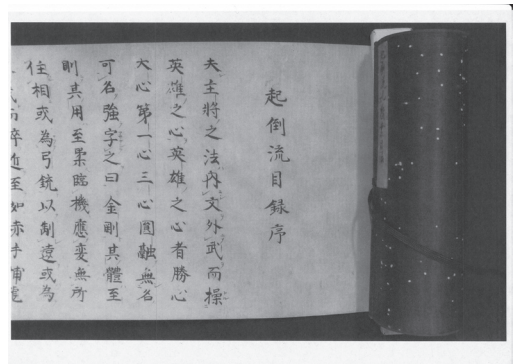 起倒流目録序
夫主將之法內文外武而操
英雄之心英雄之心者勝心
大心第一心三心圓融無名
可名強字之曰金剛其體至
剛其用至柔臨機應変無所
住相或為弓銃以制遠或為
卒近至如赤手